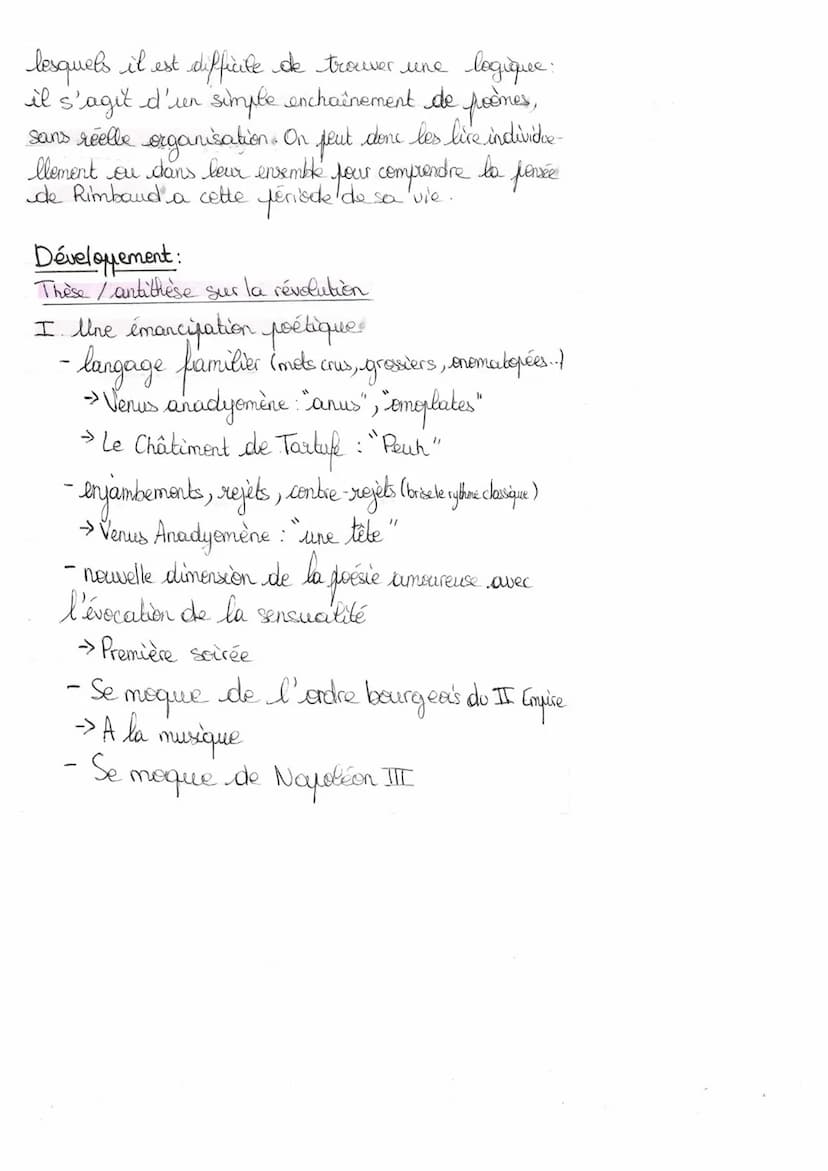 lesquels il est difficile de trouver une logique:
il s'agit d'un simple enchaînement de poèmes,
sans réelle organisation. On peut donc les lire individue-
llement ou dans leur ensemble pour comprendre la pensée
de Rimbaud a cette période de sa vie.
Développement:
Thèse / antithèse sur la révolution
I. Une émancipation poétique
- langage familier (mots crus, grossiers, onomatopées..)
-> Venus anadyomène: "anus", "omoplates"
-> Le Châtiment de Tartufe : "Peuh"
- enjambements, rejets, contre-rejets (brise le rythme classique)
-> Venus Anadyomène : "une tête"
- nouvelle dimension de la poésie amoureuse avec
l'évocation de la sensualité
-> Première soirée
- Se moque de l'ordre bourgeois du II Empire
-> A la musique
- Se moque de Napoléon III